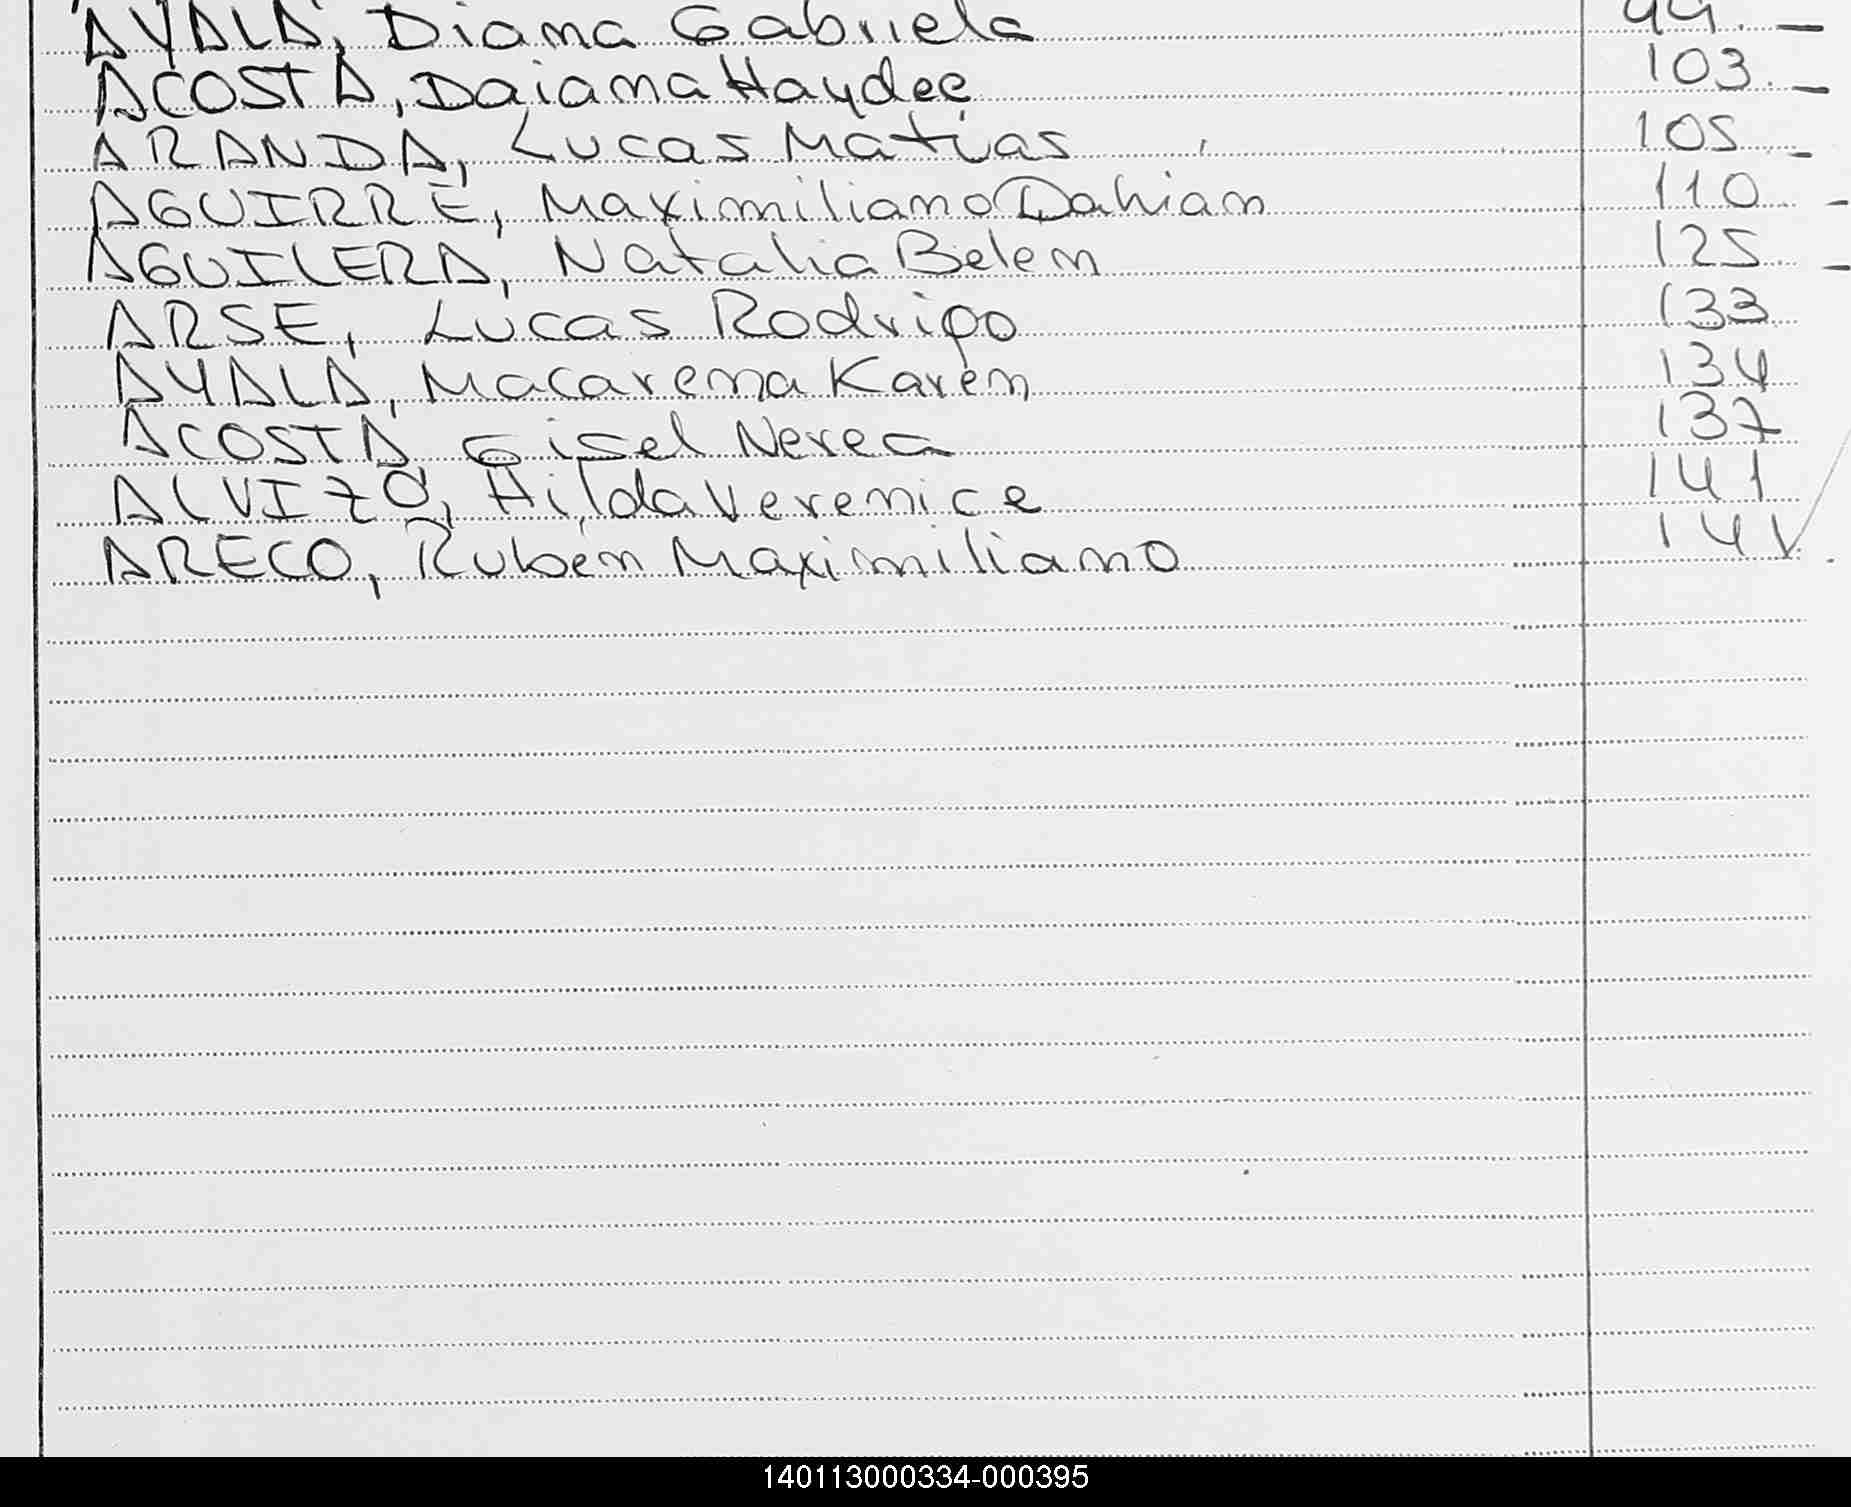 AYALA, Diana Gabriela 99.—
ACOSTA, Daiana Haydee 103.—
ARANDA, Lucas Matias 105.—
AGUIRRE, Maximiliano Dahian 110.—
AGUILERA, Natalia Belen 125.—
ARSE, Lucas Rodrigo 133
AYALA, Macarena Karen 134
ACOSTA, Gisel Nerea 137
ALVIZO, Hilda Verenice 141
ARECO, Rubén Maximiliano 141
140113000334-000395